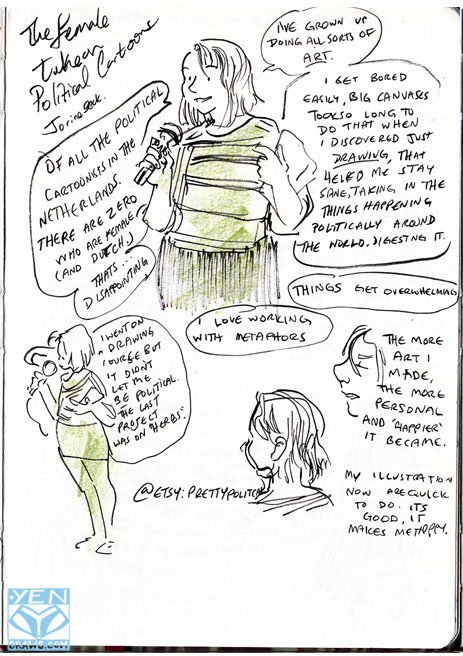 The Female
take on
Political Cartoons
Jorina
OF ALL THE POLITICAL
CARTOONISTS IN THE
NETHERLANDS.
THERE ARE ZERO
WHO ARE FEMALE
(AND DUTCH.)
THATS...
DISAPPOINTING
I'VE GROWN UP
DOING ALL SORTS OF
ART.
I GET BORED
EASILY, BIG CANVASES
TOOK SO LONG TO
DO THAT WHEN
I DISCOVERED JUST
DRAWING, THAT
HELED ME STAY
SANE, TAKING IN THE
THINGS HAPPENING
POLITICALLY AROUND
THE WORLD, DIGESTING IT.
THINGS GET OVERWHELMING
I LOVE WORKING
WITH METAPHORS
I WENT ON
A DRAWING
COURSE BUT
IT DIDNT
LET ME
BE POLITICAL.
THE LAST
PROJECT
WAS ON 'HERBS'.
THE MORE
ART I
MADE,
THE MORE
PERSONAL
AND 'HAPPIER'
IT BECAME.
@ETSY: PRETTYPOLITICAL
MY ILLUSTRATION
NOW ARE QUICK
TO DO. ITS
GOOD, IT
MAKES ME HAPPY.
YEN
DRAWS.COM